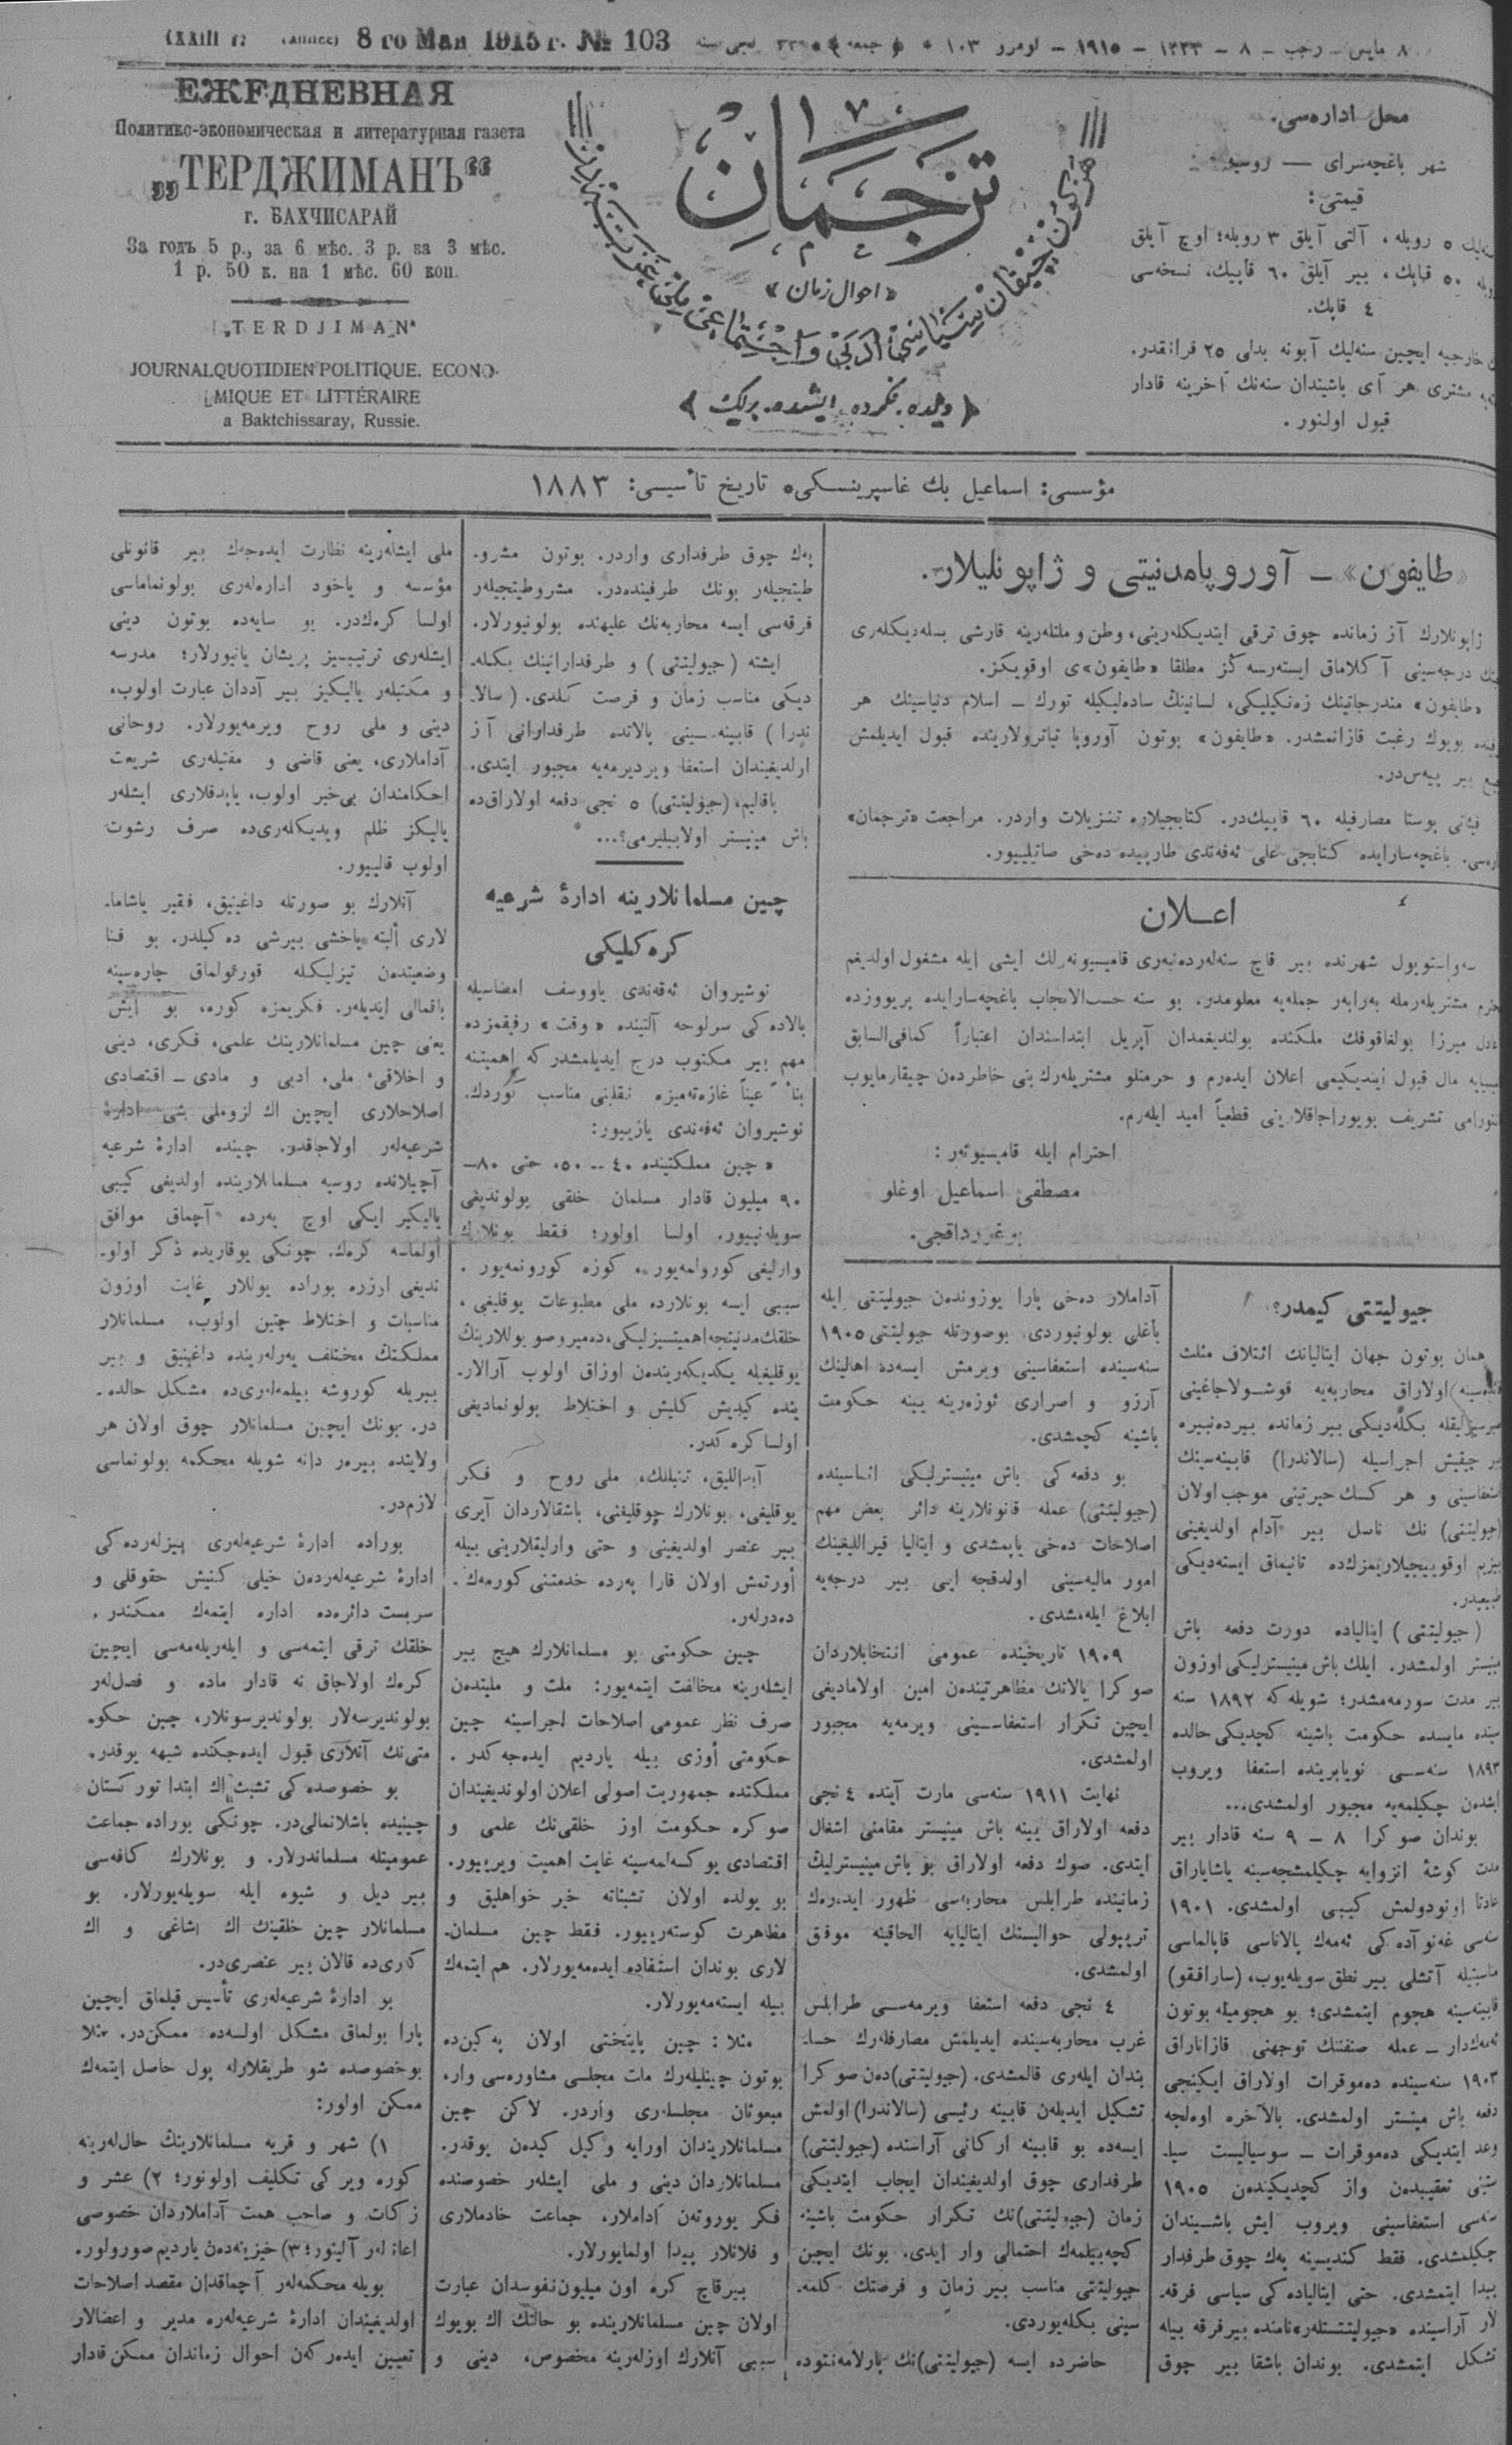 ٨ مایس ـ رجب ـ ٨ ـ ١٣٣٣ ـ ١٩١٥ ـ نومرو ١٠٣ * ﴿ جمعه ﴾ * ٣٣ نجی سنه
8 го Мая 1915 г. № 103
ЕЖЕДНЕВНАЯ
Политико-экономическая и литературная газета
„ТЕРДЖИМАНЪ“
г. БАХЧИСАРАЙ
За годъ 5 р., за 6 мѣс. 3 р. за 3 мѣс.
1 р. 50 к. на 1 мѣс. 60 коп.
„TERDJIMAN“
JOURNAL QUOTIDIEN POLITIQUE. ECONO-
MIQUE ET LITTÉRAIRE
a Baktchissaray, Russie.
ترجمان
«احوال زمان»
﴿ دیلده، فكرده، ایشده، برلك ﴾
محل اداره‌سی.
شهر باغچه‌سرای — روسیه
قیمتی:
٥ روبله، آلتی آیلق ٣ روبله؛ اوچ آیلق
٥٠ قاپك، بیر آیلق ٦٠ قاپیك، نسخه‌سی
٤ قاپك.
خارجیه ایچین سنه‌لیك آبونه بدلی ٢٥ فرانقدر.
مشتری هر آی باشیندان سنه‌نك آخرینه قادار
قبول اولنور.
مؤسسی: اسماعیل بك غاسپرینسكی * تاریخ تأسیسی: ١٨٨٣
«طایفون» ـ آوروپا مدنیتی و ژاپونلیلار.
ژاپونلارك آز زمانده چوق ترقی ایتدیكله‌رینی، وطن و ملتله‌رینه قارشی بسله‌دیكله‌ری
درجه‌سینی آكلاماق ایسته‌رسه‌كز مطلقا «طایفون»ی اوقویكز.
«طایفون» مندرجاتینك زه‌نكیلیكی، لسانینك ساده‌لیكیله تورك ـ اسلام دنیاسینك هر
بویوك رغبت قازانمشدر. «طایفون» بوتون آوروپا تیاترولارینده قبول ایدیلمش
بیر پیه‌س‌در.
فیئاتی پوستا مصارفیله ٦٠ قاپیك‌در. كتابجیلاره تنزیلات واردر. مراجعت «ترجمان»
باغچه‌سارایده كتابجی علی ئه‌فه‌ندی طارپیده ده‌خی صاتیلییور.
اعــلان
سه‌واستوپول شهرنده بیر قاچ سنه‌لەرده‌نبه‌ری قامیسیونه‌رلك ایشی ایله مشغول اولدیغم
مشتریله‌رمله به‌رابه‌ر جمله‌یه معلومدر. بو سنه حسب‌الایجاب باغچه‌سارایده پریووزده
میرزا بولغاقوفك ملكنده بولندیغمدان آپریل ابتداسندان اعتباراً كمافی‌السابق
مال قبول ایتدیكیمی اعلان ایده‌رم و حرمتلو مشتریله‌رك بنی خاطردن چیقارمایوب
تشریف بویوراجاقلارینی قطعیاً امید ایله‌رم.
احترام ایله قامیسیونه‌ر:
مصطفی اسماعیل اوغلو
جیولیتتی كیمدر؟
همان بوتون جهان ایتالیانك ائتلاف مثلث
اولاراق محاربه‌یه قوشــولاجاغینی
بكله‌دیكی بیر زمانده بیردنبیره
چیقیش اجراسیله (سالاندرا) قابینه‌سینك
استعفاسینی و هر كسك حیرتینی موجب اولان
(جیولیتتی) نك ناسل بیر آدام اولدیغینی
بیزیم اوقوییجیلاریمزك‌ده تانیماق ایسته‌دیكی
طبیعیدر.
(جیولیتتی) ایتالیاده دورت دفعه باش
مینیستر اولمشدر. ایلك باش مینیسترلیكی اوزون
بیر مدت سورمه‌مشدر؛ شویله‌كه ١٨٩٢ سنه
سینده مایسده حكومت باشینه كچدیكی حالده
١٨٩٣ سنه‌ســی نویابرینده استعفا ویروب
ایشدن چكیلمه‌یه مجبور اولمشدی...
بوندان صوكرا ٨ ـ ٩ سنه قادار بیر
مدت كوشهٔ انزوایه چكیلمشجه‌سینه یاشایاراق
عادتا اونودولمش كیبی اولمشدی. ١٩٠١
سنه‌سی غه‌نوآده‌كی ئه‌مه‌ك پالاتاسی قاپالماسی
مناسبتیله آتشلی بیر نطق سویله‌یوب، (ساراققو)
قابینه‌سینه هجوم ایتمشدی؛ بو هجومیله بوتون
ئه‌مه‌كدار ـ عمله صنفنك توجهنی قازاناراق
١٩٠٣ سنه‌سینده ده‌موقرات اولاراق ایكینجی
دفعه باش مینستر اولمشدی. بالآخره اوه‌لجه
وعد ایتدیكی ده‌موقرات ـ سوسیالیست سیا-
ستنی تعقیبدن واز كچدیكیندن ١٩٠٥
سنه‌سی استعفاسینی ویروب ایش باشــیندان
چكیلمشدی. فقط كندیسینه پك چوق طرفدار
پیدا ایتمشدی. حتی ایتالیاده‌كی سیاسی فرقه-
لار آراسینده «جیولیتتستله‌ر» نامنده بیر فرقه بیله
تشكل ایتمشدی. بوندان باشقا بیر چوق
آداملار ده‌خی پارا یوزوندن جیولیتتی ایله
باغلی بولونیوردی. بوصورتله جیولیتتی ١٩٠٥
سنه‌سینده استعفاسینی ویرمش ایسه‌ده اهالینك
آرزو و اصراری ئوزه‌رینه یینه حكومت
باشینه كچمشدی.
بو دفعه‌كی باش مینیسترلیكی اثناسینده
(جیولیتتی) عمله قانونلارینه دائر بعض مهم
اصلاحات ده‌خی یاپمشدی و ایتالیا قیرالیغینك
امور مالیه‌سینی اولدقجه ایی بیر درجه‌یه
ابلاغ ایله‌مشدی.
١٩٠٩ تاریخینده عمومی انتخابلاردان
صوكرا پالاتك مظاهرتیندن امین اولامادیغی
ایچین تكرار استعفاســینی ویرمه‌یه مجبور
اولمشدی.
نهایت ١٩١١ سنه‌سی مارت آینده ٤ نجی
دفعه اولاراق یینه باش مینیستر مقامنی اشغال
ایتدی. صوك دفعه اولاراق بو باش مینیسترلیك
زمانینده طرابلس محاربه‌سی ظهور ایده‌رك
تریپولی حوالیسنك ایتالیایه الحاقینه موفق
اولمشدی.
٤ نجی دفعه استعفا ویرمه‌ســی طرابلس
غرب محاربه‌سینده ایدیلمش مصارفله‌رك حسا-
بندان ایله‌ری قالمشدی. (جیولیتتی)دن صوكرا
تشكیل ایدیله‌ن قابینه رئیسی (سالاندرا) اولمش
ایسه‌ده بو قابینه اركانی آراسنده (جیولیتتی)
طرفداری چوق اولدیغیندان ایجاب ایتدیكی
زمان (جیولیتتی)نك تكرار حكومت باشینه
كچه‌بیلمه‌ك احتمالی وار ایدی. بونك ایچین
جیولیتتی مناسب بیر زمان و فرصتك كلمه-
سینی بكله‌یوردی.
حاضرده ایسه (جیولیتتی)نك پارلامه‌نتوده
پك چوق طرفداری واردر. بوتون مشرو-
طیتجیله‌ر بونك طرفینده‌در. مشروطیتجیله‌ر
فرقه‌سی ایسه محاربه‌نك علیهنده بولونیورلار.
ایشته (جیولیتتی) و طرفدارانینك بكله-
دیكی مناسب زمان و فرصت كلدی. (سالا-
ندرا) قابینه‌سینی پالاتده طرفدارانی آز
اولدیغیندان استعفا ویردیرمه‌یه مجبور ایتدی.
باقالیم، (جیولیتتی) ٥ نجی دفعه اولاراق‌ده
باش مینیستر اولابیلیرمی؟...
چین مسلمانلارینه ادارهٔ شرعیه
كره‌كلیكی
نوشیروان ئه‌فه‌ندی یاووسف امضاسیله
بالاده‌كی سرلوحه آلتینده «وقت» رفیقمزده
مهم بیر مكتوب درج ایدیلمشدر كه اهمیتینه
بناً عیناً غازه‌ته‌میزه نقلنی مناسب كوردك.
نوشیروان ئه‌فه‌ندی یازییور:
«چین مملكتینده ٤٠ ـ ٥٠، حتی ٨٠ـ
٩٠ میلیون قادار مسلمان خلقی بولوندیغی
سویله‌نییور. اولسا اولور؛ فقط بونلارك
وارلیغی كورولمه‌یور، كوزه كورونمه‌یور.
سببی ایسه بونلارده ملی مطبوعات یوقلیغی،
خلقك مدنیتجه اهمیتسیزلیكی، ده‌میر و صو یوللارینك
یوقلیغیله یكدیكه‌ریندن اوزاق اولوب آرالار-
ینده كیدیش كلیش و اختلاط بولونمادیغی
اولسا كره‌كدر.
تنبللك، ملی روح و فكر
یوقلیغی، بونلارك چوقلیغنی، باشقالاردان آیری
بیر عنصر اولدیغینی و حتی وارلیقلارینی بیله
أورتمش اولان قارا پەرده خدمتنی كورمه‌ك-
ده‌درله‌ر.
چین حكومتی بو مسلمانلارك هیچ بیر
ایشله‌رینه مخالفت ایتمه‌یور: ملت و ملیتدن
صرف نظر عمومی اصلاحات اجراسینه چین
حكومتی أوزی بیله یاردیم ایده‌جه‌كدر.
مملكتده جمهوریت اصولی اعلان اولوندیغیندان
صوكره حكومت اوز خلقی‌نك علمی و
اقتصادی یوكسه‌لمه‌سینه غایت اهمیت ویرییور.
بو یولده اولان تشبثاته خیر خواهلیق و
مظاهرت كوسته‌رییور. فقط چین مسلمان-
لاری بوندان استفاده ایده‌مه‌یورلار. هم ایتمه‌ك
بیله ایسته‌مه‌یورلار.
مثلا: چین پایتختی اولان په‌كین‌ده
بوتون چینلیله‌رك ملت مجلسی مشاوره‌سی وار،
مبعوثان مجلسله‌ری واردر. لاكن چین
مسلمانلاریندان اورایه وكیل كیدن یوقدر.
مسلمانلاردان دینی و ملی ایشله‌ر خصوصنده
فكر یوروتەن آداملار، جماعت خادملاری
و فلانلار پیدا اولمایورلار.
بیرقاچ كره اون میلیون نفوسدان عبارت
اولان چین مسلمانلارینده بو حالتك اك بویوك
سببی آنلارك اوزله‌رینه مخصوص، دینی و
ملی ایشله‌رینه نظارت ایده‌جه‌ك بیر قانونلی
مؤسسه و یاخود اداره‌له‌ری بولونماماسی
اولسا كره‌كدر. بو سایه‌ده بوتون دینی
ایشله‌ری ترتیبسیز پریشان یاتیورلار؛ مدرسه
و مكتبله‌ر یالیكیز بیر آددان عبارت اولوب،
دینی و ملی روح ویرمه‌یورلار. روحانی
آداملاری، یعنی قاضی و مفتیله‌ری شریعت
احكامندان بی‌خبر اولوب، یاپدقلاری ایشله‌ر
یالیكز ظلم ویدیكله‌ری‌ده صرف رشوت
اولوب قالییور.
آنلارك بو صورتله داغینیق، فقیر یاشاما-
لاری ألبته یاخشی بیرشی ده‌كیلدر. بو فنا
وضعیتدن تیزلیكله قورتولماق چاره‌سینه
باقمالی ایدیله‌ر. فكریمزه كوره، بو ایش
یعنی چین مسلمانلارینك علمی، فكری، دینی
و اخلاقی، ملی، ادبی و مادی ـ اقتصادی
اصلاحلاری ایچین اك لزوملی شی ادارهٔ
شرعیه‌له‌ر اولاجاقدر. چینده ادارهٔ شرعیه
آچیلانده روسیه مسلمانلارینده اولدیغی كیبی
یالیكیز ایكی اوچ یەرده آچماق موافق
اولماسه كره‌ك. چونكی یوقاریده ذكر اولو-
ندیغی اوزره بوراده یوللار غایت اوزون
مناسبات و اختلاط چتین اولوب، مسلمانلار
مملكتك مختلف یەرله‌رینده داغینیق و بیر
بیریله كوروشه بیلمه‌له‌ری‌ده مشكل حالده-
در. بونك ایچین مسلمانلار چوق اولان هر
ولایتده بیرەر دانه شویله محكمه بولونماسی
لازم‌در.
بوراده ادارهٔ شرعیه‌له‌ری بیزله‌رده‌كی
ادارهٔ شرعیه‌له‌ردن خیلی كنیش حقوقلی و
سربست دائره‌ده اداره ایتمه‌ك ممكندر.
خلقك ترقی ایتمه‌سی و ایله‌ریله‌مه‌سی ایچین
كره‌ك اولاجاق نه قادار ماده و فصل‌له‌ر
بولوندیرسه‌لار بولوندیرسونلار، چین حكو-
متی‌نك آنلاری قبول ایده‌جكنده شبهه یوقدر.
بو خصوصده‌كی تشبث اك ابتدا توركستان
چینینده باشلانمالی‌در. چونكی بوراده جماعت
عمومیتله مسلماندرلار. و بونلارك كافه‌سی
بیر دیل و شیوه ایله سویله‌یورلار. بو
مسلمانلار چین خلقینك اك اشاغی و اك
كری‌ده قالان بیر عنصری‌در.
بو ادارهٔ شرعیه‌له‌ری تأسیس قیلماق ایچین
پارا بولماق مشكل اولسه‌ده ممكن‌در. مثلا
بو خصوصده شو طریقلارله پول حاصل ایتمه‌ك
ممكن اولور:
١) شهر و قریه مسلمانلارینك حال‌له‌رینه
كوره ویركی تكلیف اولونور؛ ٢) عشر و
زكات و صاحب همت آداملاردان خصوصی
اعانه‌له‌ر آلینور؛ ٣) خیزینه‌دن یاردیم صورولور.
بویله محكمه‌له‌ر آچماقدان مقصد اصلاحات
اولدیغیندان ادارهٔ شرعیه‌له‌ره مدیر و اعضالار
تعیین ایده‌ركه‌ن احوال زماندان ممكن قادار